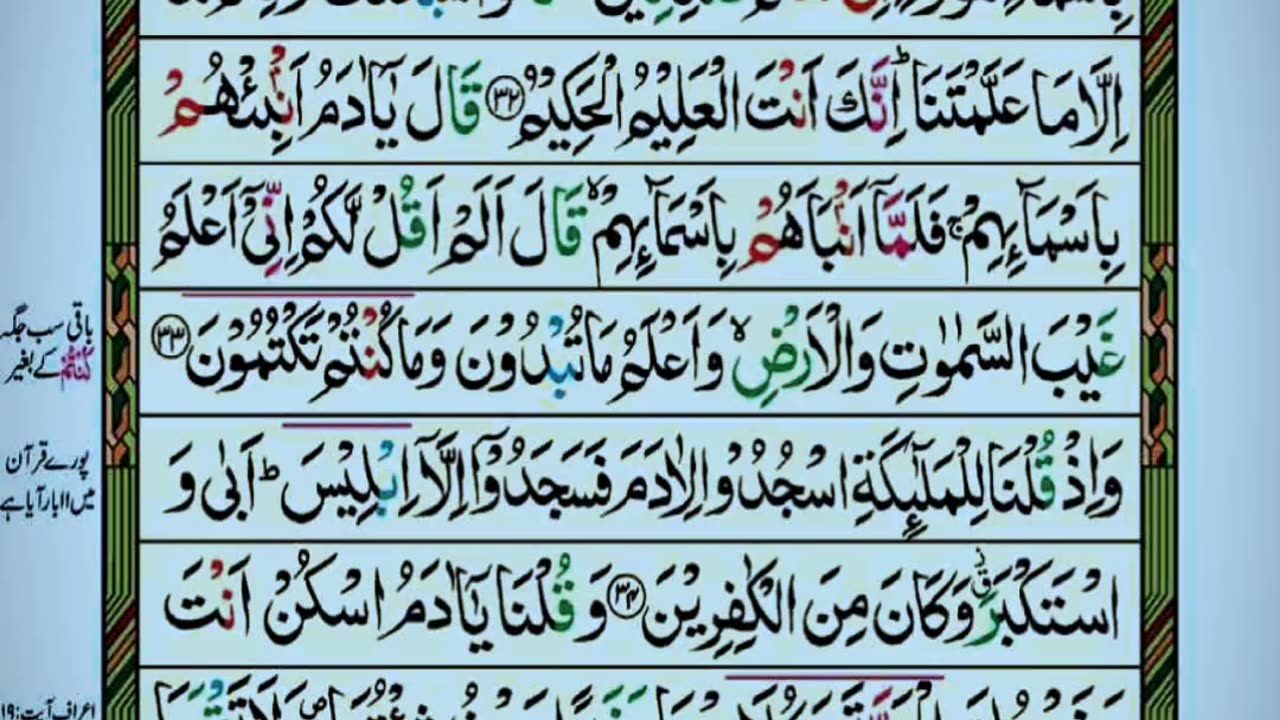 اِلَّا مَا عَلَّمْتَنَا ؕ اِنَّكَ اَنْتَ الْعَلِيْمُ الْحَكِيْمُ ﴿۳۲﴾ قَالَ يٰۤاٰدَمُ اَنْۢبِئْهُمْ
بِاَسْمَآئِهِمْ ۚ فَلَمَّاۤ اَنْۢبَاَهُمْ بِاَسْمَآئِهِمْ ۙ قَالَ اَلَمْ اَقُلْ لَّكُمْ اِنِّىْۤ اَعْلَمُ
غَيْبَ السَّمٰوٰتِ وَالْاَرْضِ ۙ وَاَعْلَمُ مَا تُبْدُوْنَ وَمَا كُنْتُمْ تَكْتُمُوْنَ ﴿۳۳﴾
وَاِذْ قُلْنَا لِلْمَلٰٓئِكَةِ اسْجُدُوْا لِاٰدَمَ فَسَجَدُوْۤا اِلَّاۤ اِبْلِيْسَ ؕ اَبٰى وَ
اسْتَكْبَرَ ٭ۗ وَكَانَ مِنَ الْكٰفِرِيْنَ ﴿۳۴﴾ وَ قُلْنَا يٰۤاٰدَمُ اسْكُنْ اَنْتَ
باقی سب جگہ
كُنْتُمْ کے بغیر
پورے قرآن
میں ۱۱ بار آیا ہے
اعراف آیت: ۱۹